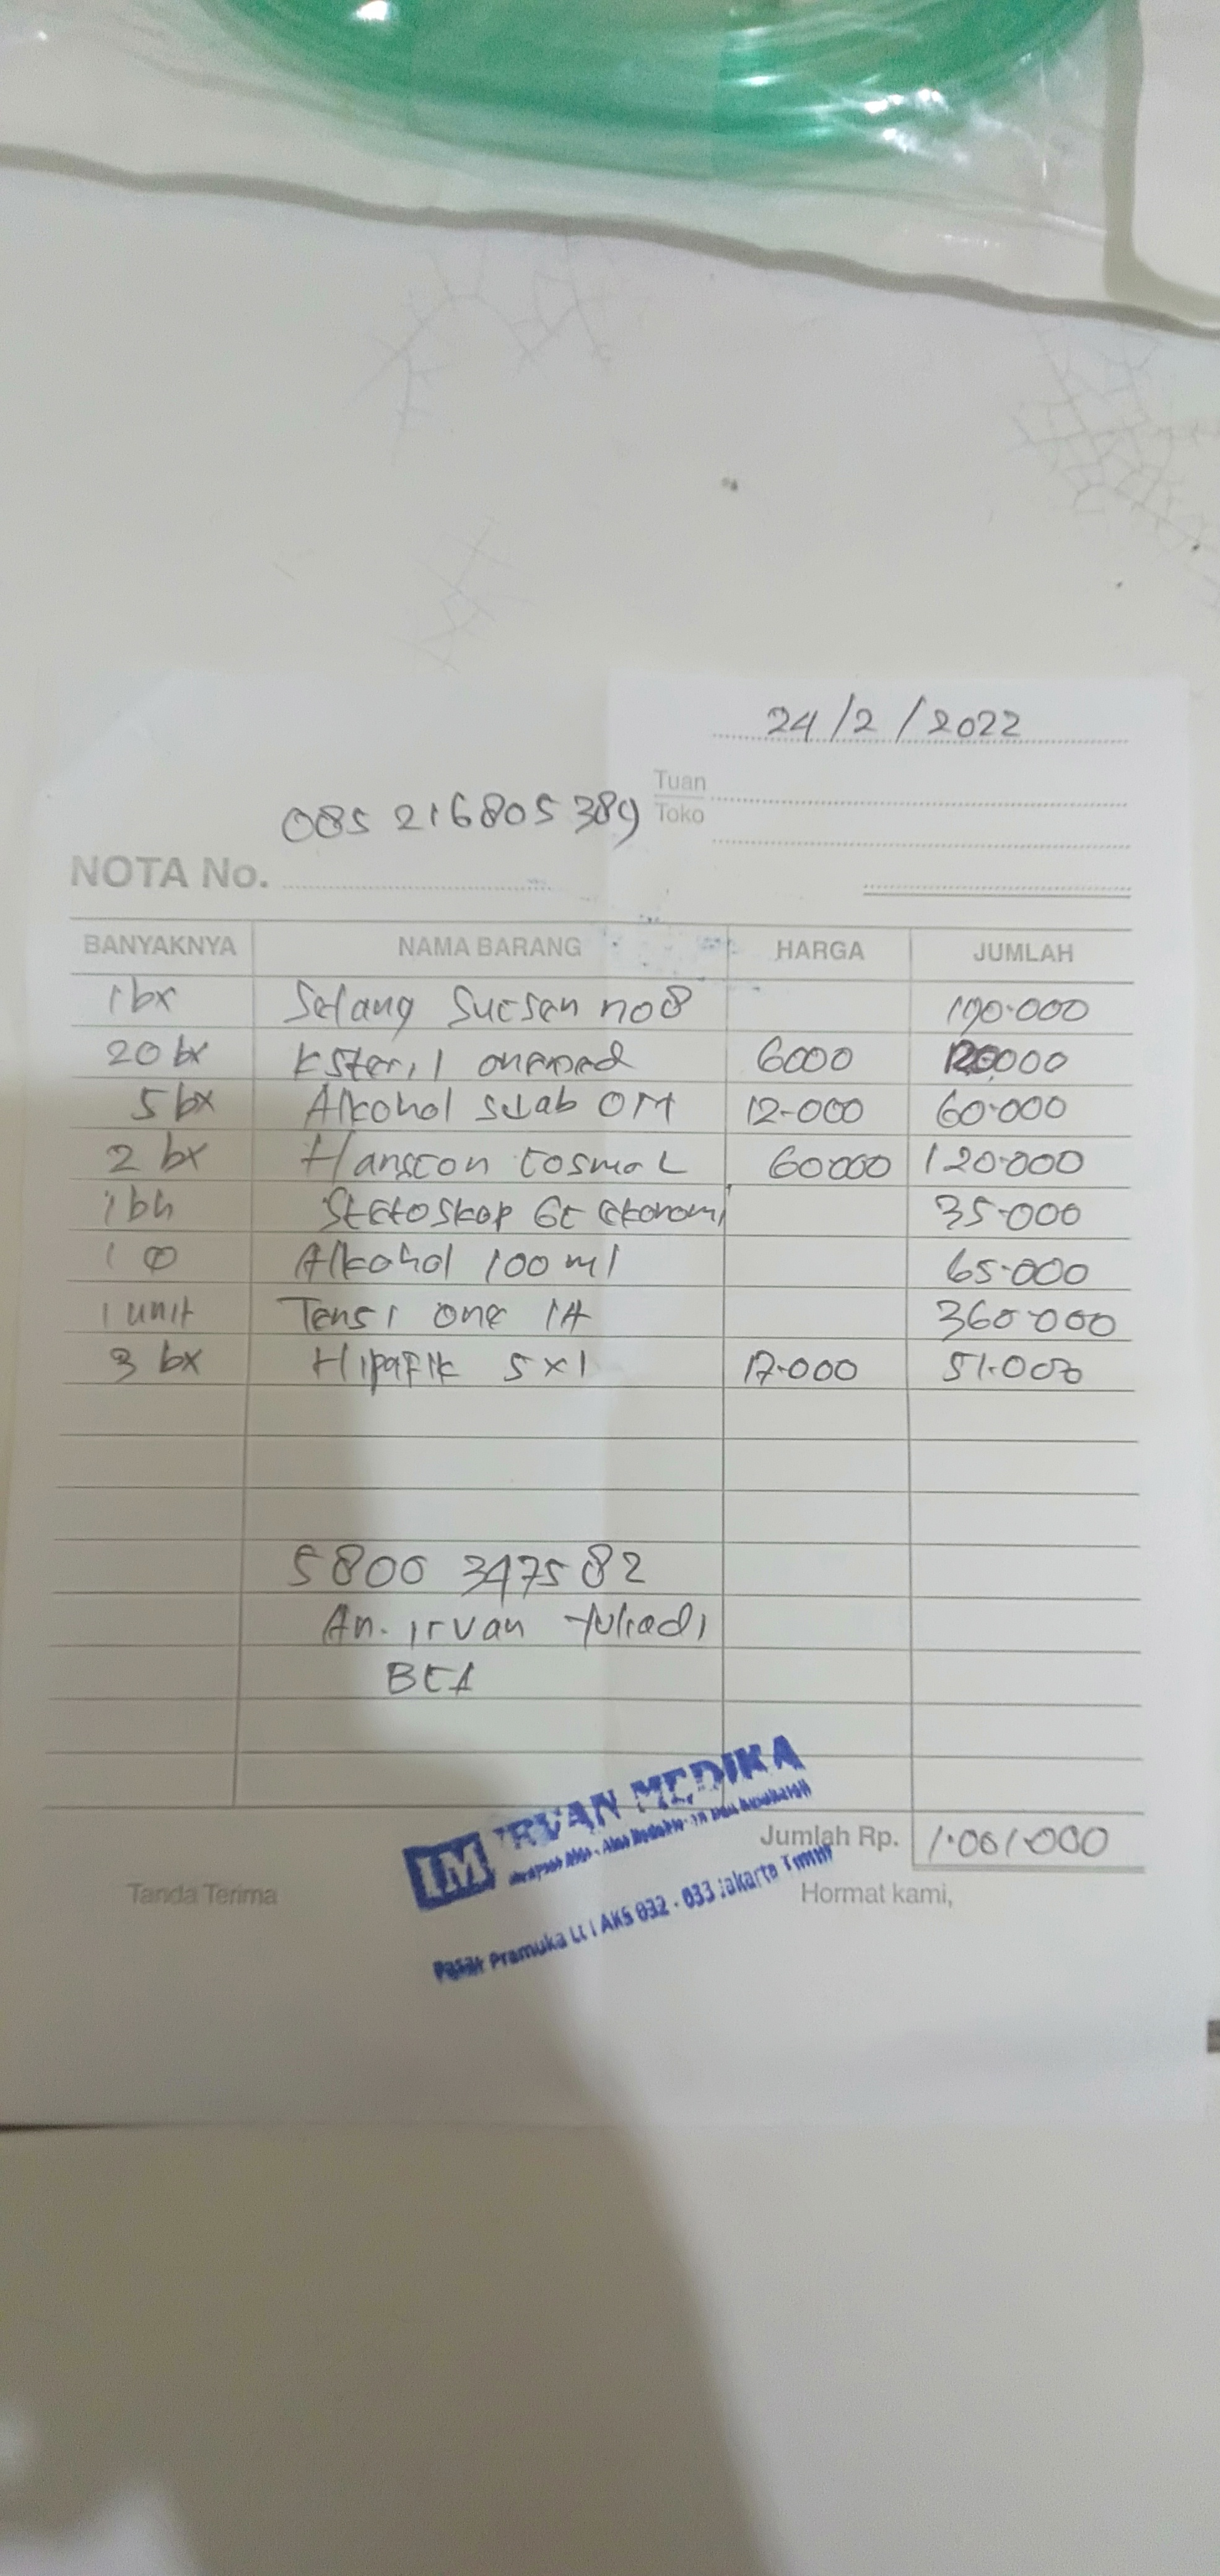 24/2/2022
Tuan
Toko
085 216805389
NOTA No.
BANYAKNYA NAMA BARANG HARGA JUMLAH
1 bx Selang Sucsen no 8 190.000
20 bx K Steril onemed 6000 120000
5 bx Alkohol swab OM 12.000 60.000
2 bx Hanscon cosmo L 60000 120.000
1 bh Stetoskop GC ekonomi 35.000
1 Alkohol 100 ml 65.000
1 unit Tensi one 1A 360.000
3 bx Hipafik 5x1 17.000 51.000
5800 347582
An. irvan Yuliadi
BCA
IM IRVAN MEDIKA
Jumlah Rp. 1.001.000
Pasar Pramuka Lt 1 AKS 032 - 033 Jakarta Timur
Tanda Terima Hormat kami,